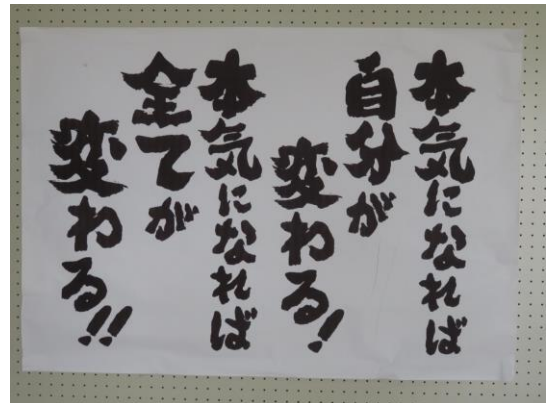 本気になれば
自分が
変わる!
本気になれば
全てが
変わる!!